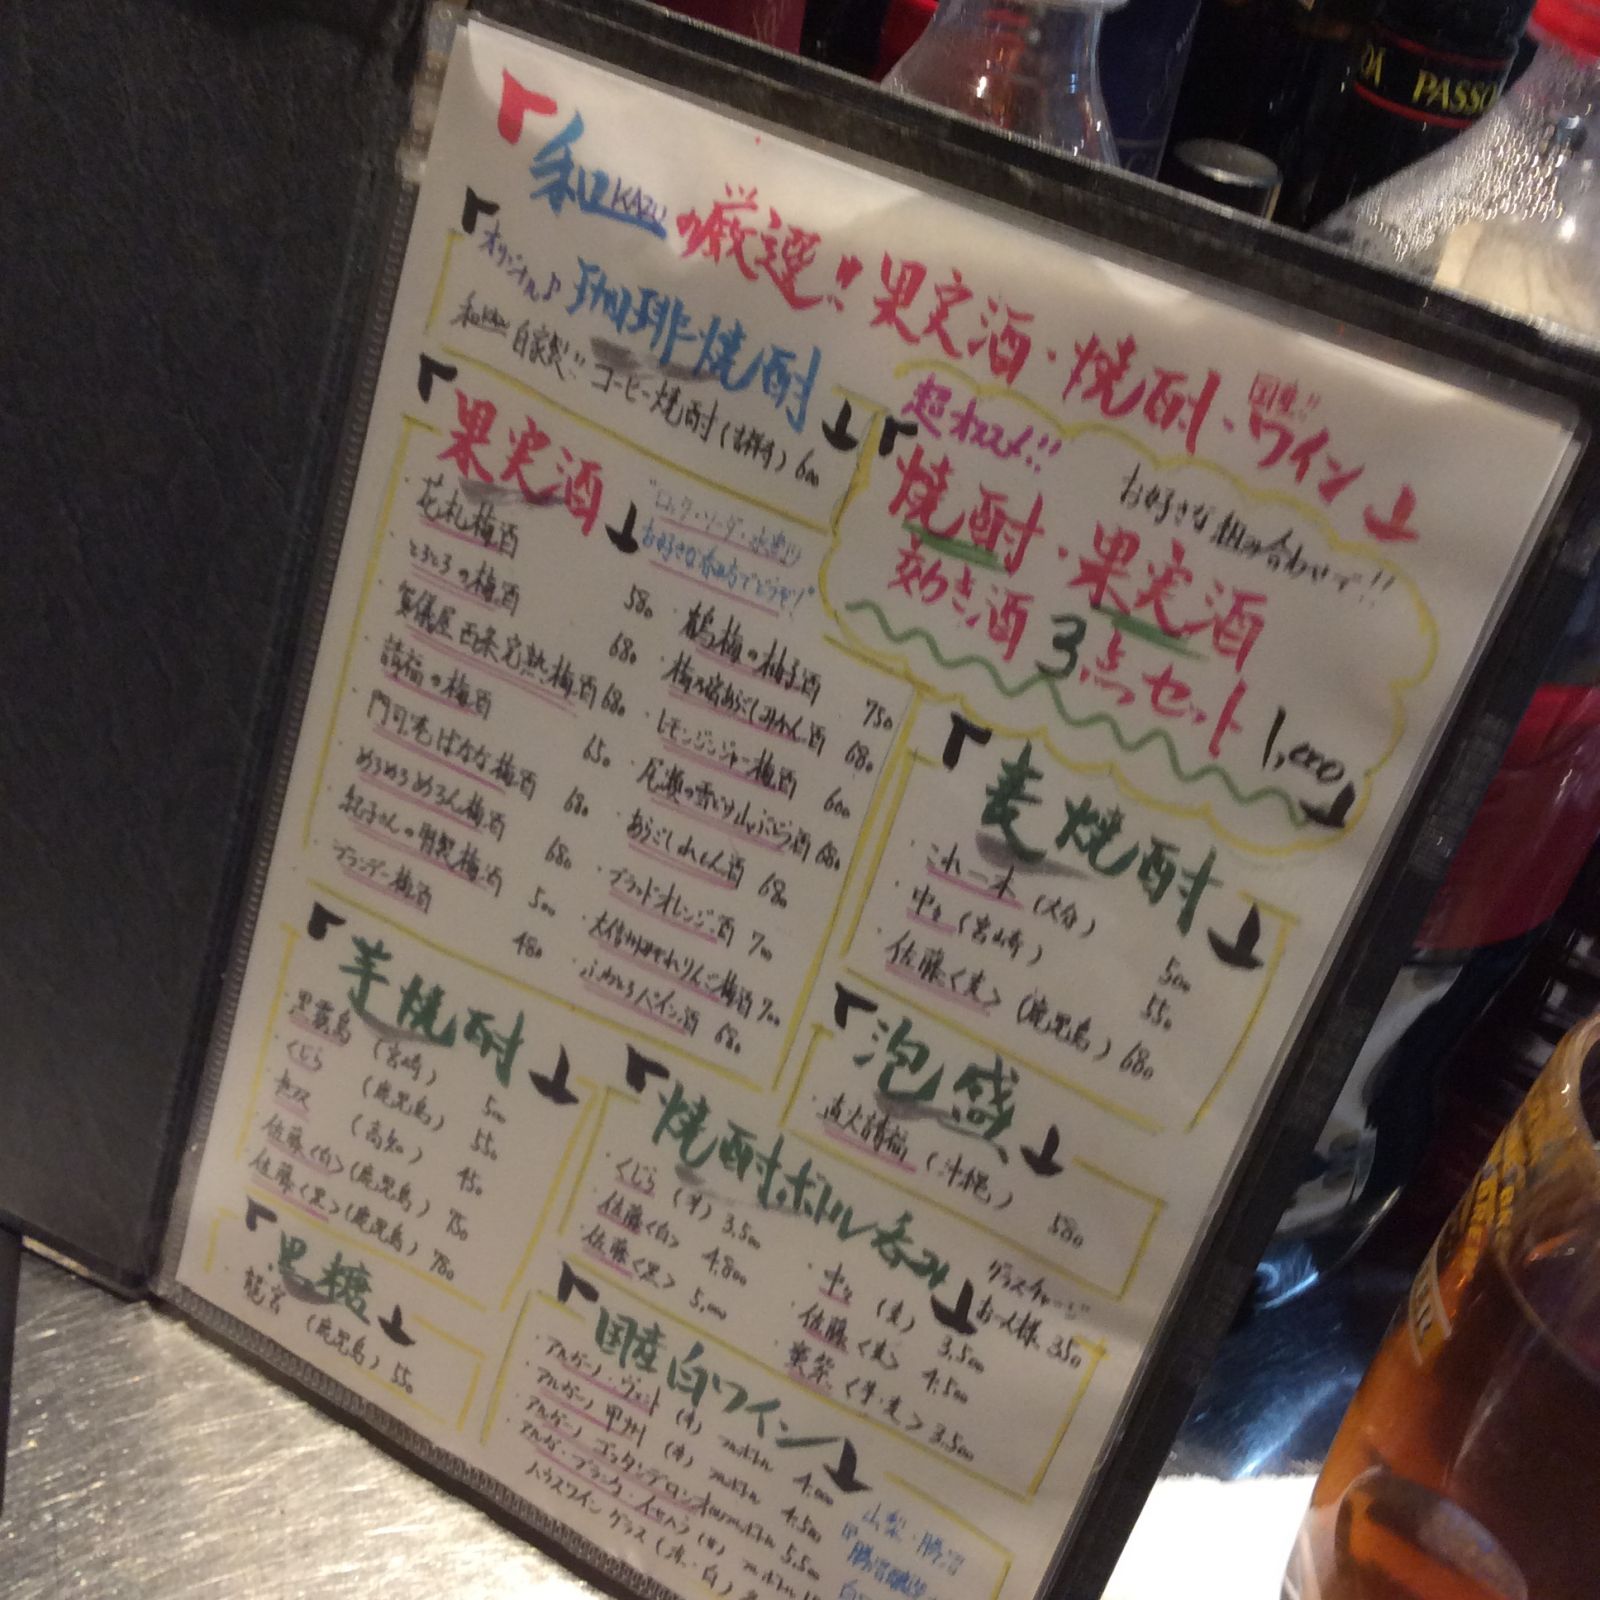 和KAZU厳選!!果実酒・焼酎・国産!!ワイン
オリジナル♪珈琲焼酎
和KAZU 自家製!! コーヒー焼酎 600
超オススメ!!
お好きな組み合わせで!!
焼酎・果実酒
効き酒3点セット 1,000
果実酒
"ロック・ソーダ・水割り
お好きな飲み方でどうぞ!"
花札梅酒 580
とろとろの梅酒 680
賀儀屋 西条完熟梅酒 680
請福の梅酒 650
門司港ばなな梅酒 680
めろめろめろん梅酒 680
紀子さんの特製梅酒 500
ブランデー梅酒 480
・鶴梅の柚子酒 750
・梅乃宿あらごしみかん酒 680
・レモンジンジャー梅酒 600
・尾瀬の雪どけ山ぶどう酒 680
・あらごしれもん酒 680
・ブラッドオレンジ酒 700
・大信州みぞれりんご梅酒 700
・ふわとろパイン酒 680
麦焼酎
・これ一本 (大分) 500
・中々 (宮崎) 550
・佐藤<麦> (鹿児島) 680
泡盛
・直火請福 (沖縄) 580
芋焼酎
・黒霧島 (宮崎) 500
・くじら (鹿児島) 550
(高知) 450
・佐藤<白> (鹿児島) 750
・佐藤<黒> (鹿児島) 780
黒糖
・龍宮 (鹿児島) 550
焼酎ボトル呑み
グラスチャージ
お一人様 350
・くじら (芋) 3,500
・佐藤<白> 4,800
・佐藤<黒> 5,000
・中々 (麦) 3,500
・佐藤<麦> 4,500
<芋・麦> 3,500
国産白ワイン
・アルガーノ・ヴェント (白) フルボトル 4,000
・アルガーノ 甲州 (白) フルボトル 4,500
・アルガーノ ゴッタシデロシオ フルボトル 5,500
・アルガ・ブランカ・イセハラ (白) フルボトル
ハウスワイン グラス (赤・白)
山梨・勝沼
PASSO